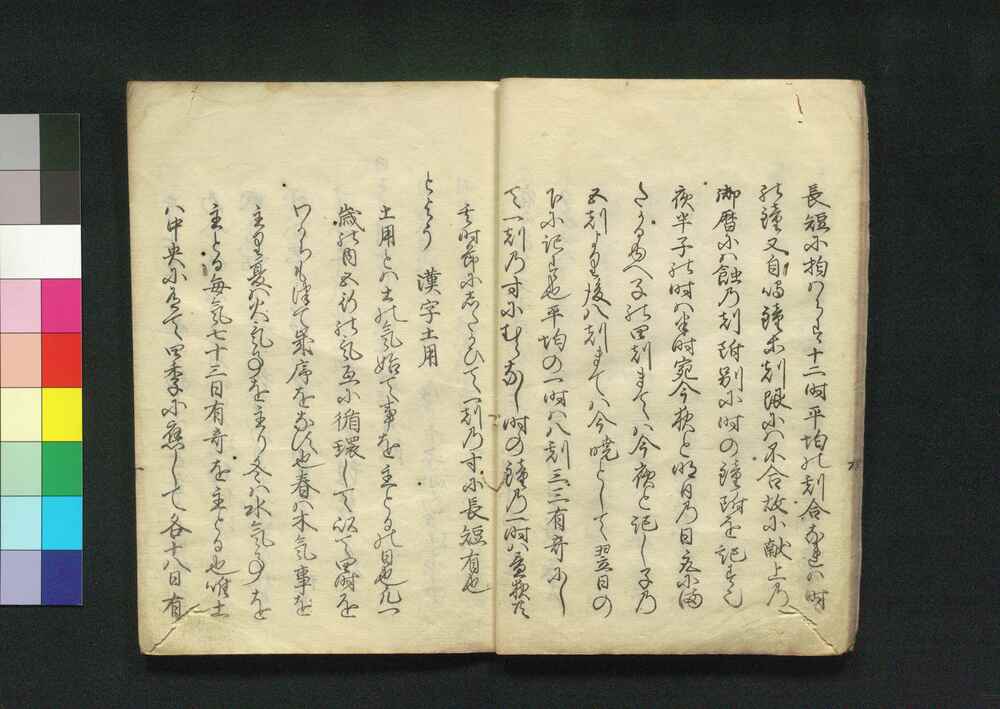 長短に拘はらす十二時平均の刻合なれは時
の鐘又自鳴鐘等刻限には不合故に献上乃
御暦には蝕乃刻附別に時の鐘附を記すも
夜半子の時は半時宛今夜と明日乃日
たる由へ子の四刻まては今夜と記し子乃
五刻より後八刻まては今暁として翌日の
下に記す也平均の一時は八刻三三有奇にし
て一刻乃寸にむらなし時の鐘乃一時は昼夜
其時節にしたかひて一刻乃寸に長短有也
とよう 漢字土用
土用とは土の気始て事を主とるの日也凡一
歳の内五行の気互に循環して以て四時を
わかち歳序をなす也春は木気事を
主り夏は火気事を主り冬は水気事を
主とる毎気七十三日有奇を主とる也唯土
は中央に居て四季に応して各十八日有